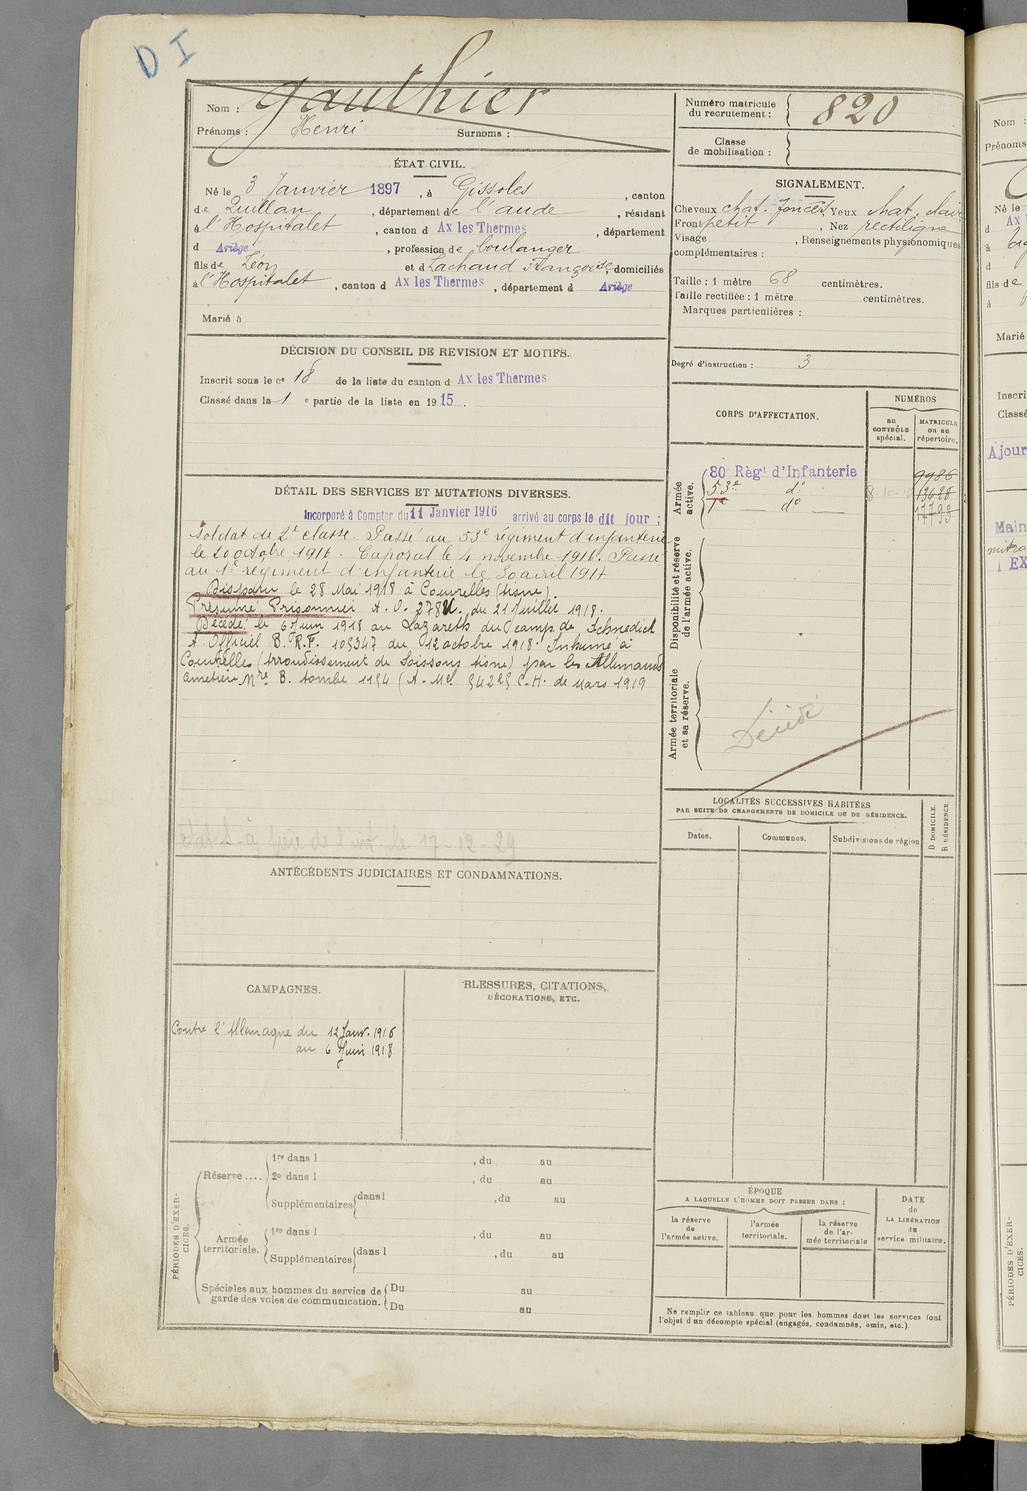 D I
Nom : Gauthier
Prénoms : Henri Surnoms :
Numéro matricule du recrutement : 820
Classe de mobilisation :
ÉTAT CIVIL.
Né le 3 Janvier 1897, à Gissoles, canton
de Quillan, département de l'aude, résidant
à l'Hospitalet, canton d Ax les Thermes, département
d Ariège, profession de boulanger
fils de Léon et d Lachaud Françoise, domiciliés
à l'Hospitalet, canton d Ax les Thermes, département d Ariège
Marié à
SIGNALEMENT.
Cheveux chat. foncés, Yeux chat. clair
Front petit, Nez rectiligne
Visage , Renseignements physionomiques
complémentaires :
Taille : 1 mètre 68 centimètres.
Taille rectifiée : 1 mètre centimètres.
Marques particulières :
Degré d'instruction : 3
DÉCISION DU CONSEIL DE REVISION ET MOTIFS.
Inscrit sous le n° 18 de la liste du canton d Ax les Thermes
Classé dans la 1 e partie de la liste en 1915.
DÉTAIL DES SERVICES ET MUTATIONS DIVERSES.
Incorporé à Compter du 11 Janvier 1916 arrivé au corps le dit jour ;
Soldat de 2e classe. Passé au 53e régiment d'infanterie
le 20 octobre 1916. Caporal le 4 novembre 1916. Passé
au 1e régiment d'infanterie le 30 avril 1917
Disparu le 28 Mai 1918 à Couvrelles (Aisne).
Présumé Prisonnier A. O. 278U. du 21 Juillet 1918.
Décédé le 6 Juin 1918 au Lazareth du camp de Schnedick
A. Officiel B.R.F. 105347 du 12 octobre 1918. Inhumé à
Couvrelles (Arrondissement de Soissons Aisne) par les Allemands
Cimetière Mre B. tombe 1154 (A. Mel 54285 C.H. de Mars 1919
CORPS D'AFFECTATION.
NUMÉROS
au CONTRÔLE spécial.
MATRICULE ou au répertoire.
Armée active.
80 Régt d'Infanterie 9986
53e do 13628
1e do
Disponibilité et réserve de l'armée active.
Armée territoriale et sa réserve.
Décédé
LOCALITÉS SUCCESSIVES HABITÉES
PAR SUITE DE CHANGEMENTS DE DOMICILE OU DE RÉSIDENCE.
Dates. Communes. Subdivisions de région
D DOMICILE. R RÉSIDENCE.
17-12-29
ANTÉCÉDENTS JUDICIAIRES ET CONDAMNATIONS.
CAMPAGNES.
Contre l'Allemagne du 12 Janv. 1916
au 6 Juin 1918
BLESSURES, CITATIONS,
DÉCORATIONS, ETC.
PÉRIODES D'EXERCICES.
Réserve.... 1re dans l , du au
2e dans l , du au
Supplémentaires dans l , du au
Armée territoriale. 1re dans l , du au
Supplémentaires dans l , du au
Spéciales aux hommes du service de Du au
garde des voies de communication. Du au
ÉPOQUE
A LAQUELLE L'HOMME DOIT PASSER DANS :
la réserve de l'armée active.
l'armée territoriale.
la réserve de l'armée territoriale
DATE de LA LIBÉRATION du service militaire.
Ne remplir ce tableau que pour les hommes dont les services font
l'objet d'un décompte spécial (engagés, condamnés, omis, etc.).
Nom :
Prénoms
Né le
Ax
fils de
Marié
Inscri
Classé
Ajour
Main
EX
PÉRIODES D'EXERCICES.